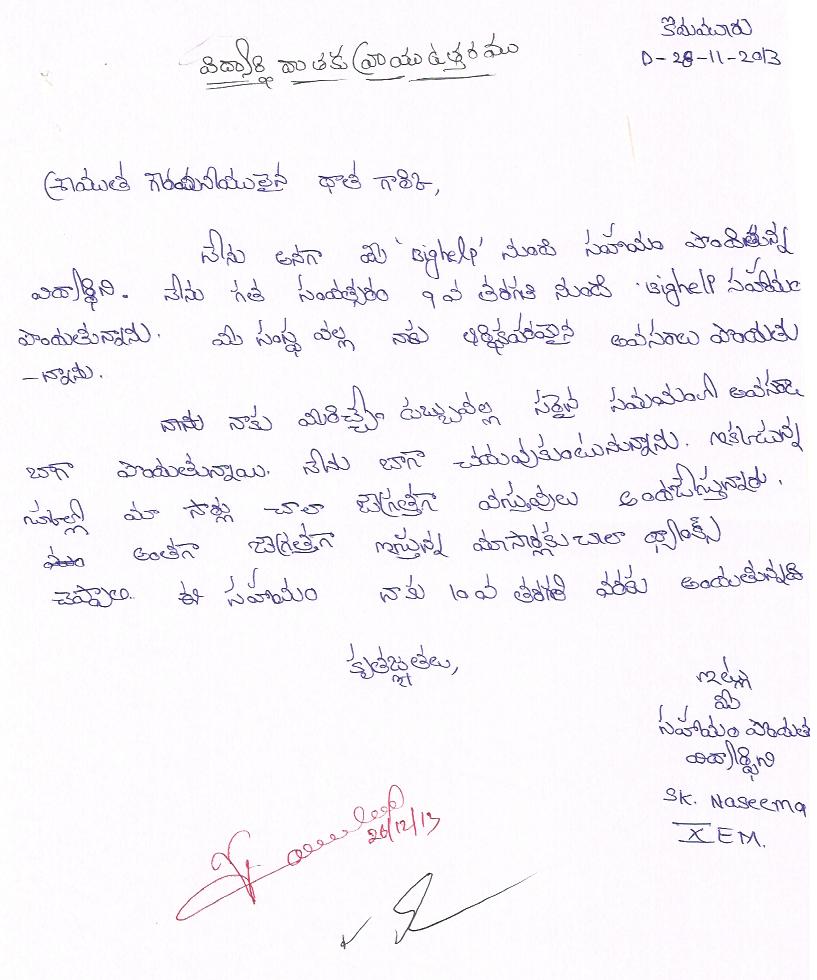 కొడుమూరు
D-28-11-2013
విద్యార్థి దాతకు వ్రాయు ఉత్తరము
శ్రీయుత గౌరవనీయులైన దాత గారికి,
నేను అనగా మీ 'Bighelp' నుండి సహాయం పొందుతున్న
విద్యార్థిని. నేను గత సంవత్సరం 9వ తరగతి నుండి 'Bighelp సహాయం
పొందుతున్నాను. మీ సంస్థ వల్ల నాకు ఆర్థికపరమైన అవసరాలు పొందుతు
-న్నాను.
దాత నాకు మీరిచ్చే డబ్బువల్ల సరైన సమయంలో అవసరా
బాగా పొందుతున్నాయి. నేను బాగా చదువుకుంటున్నాను. ఇక్కడున్న
స్కూల్లో మా సార్లు చాలా జాగ్రత్తగా వస్తువులు అందజేస్తున్నారు.
అంతగా జాగ్రత్తగా ఇస్తున్న మాసార్లకు చాలా థ్యాంక్స్
చెప్పాలి. ఈ సహాయం నాకు 10వ తరగతి వరకు అందుతున్నది
కృతజ్ఞతలు,
ఇట్లు
మీ
సహాయం పొందుత
విద్యార్థిని
SK. Naseema
X EM.
26/12/13